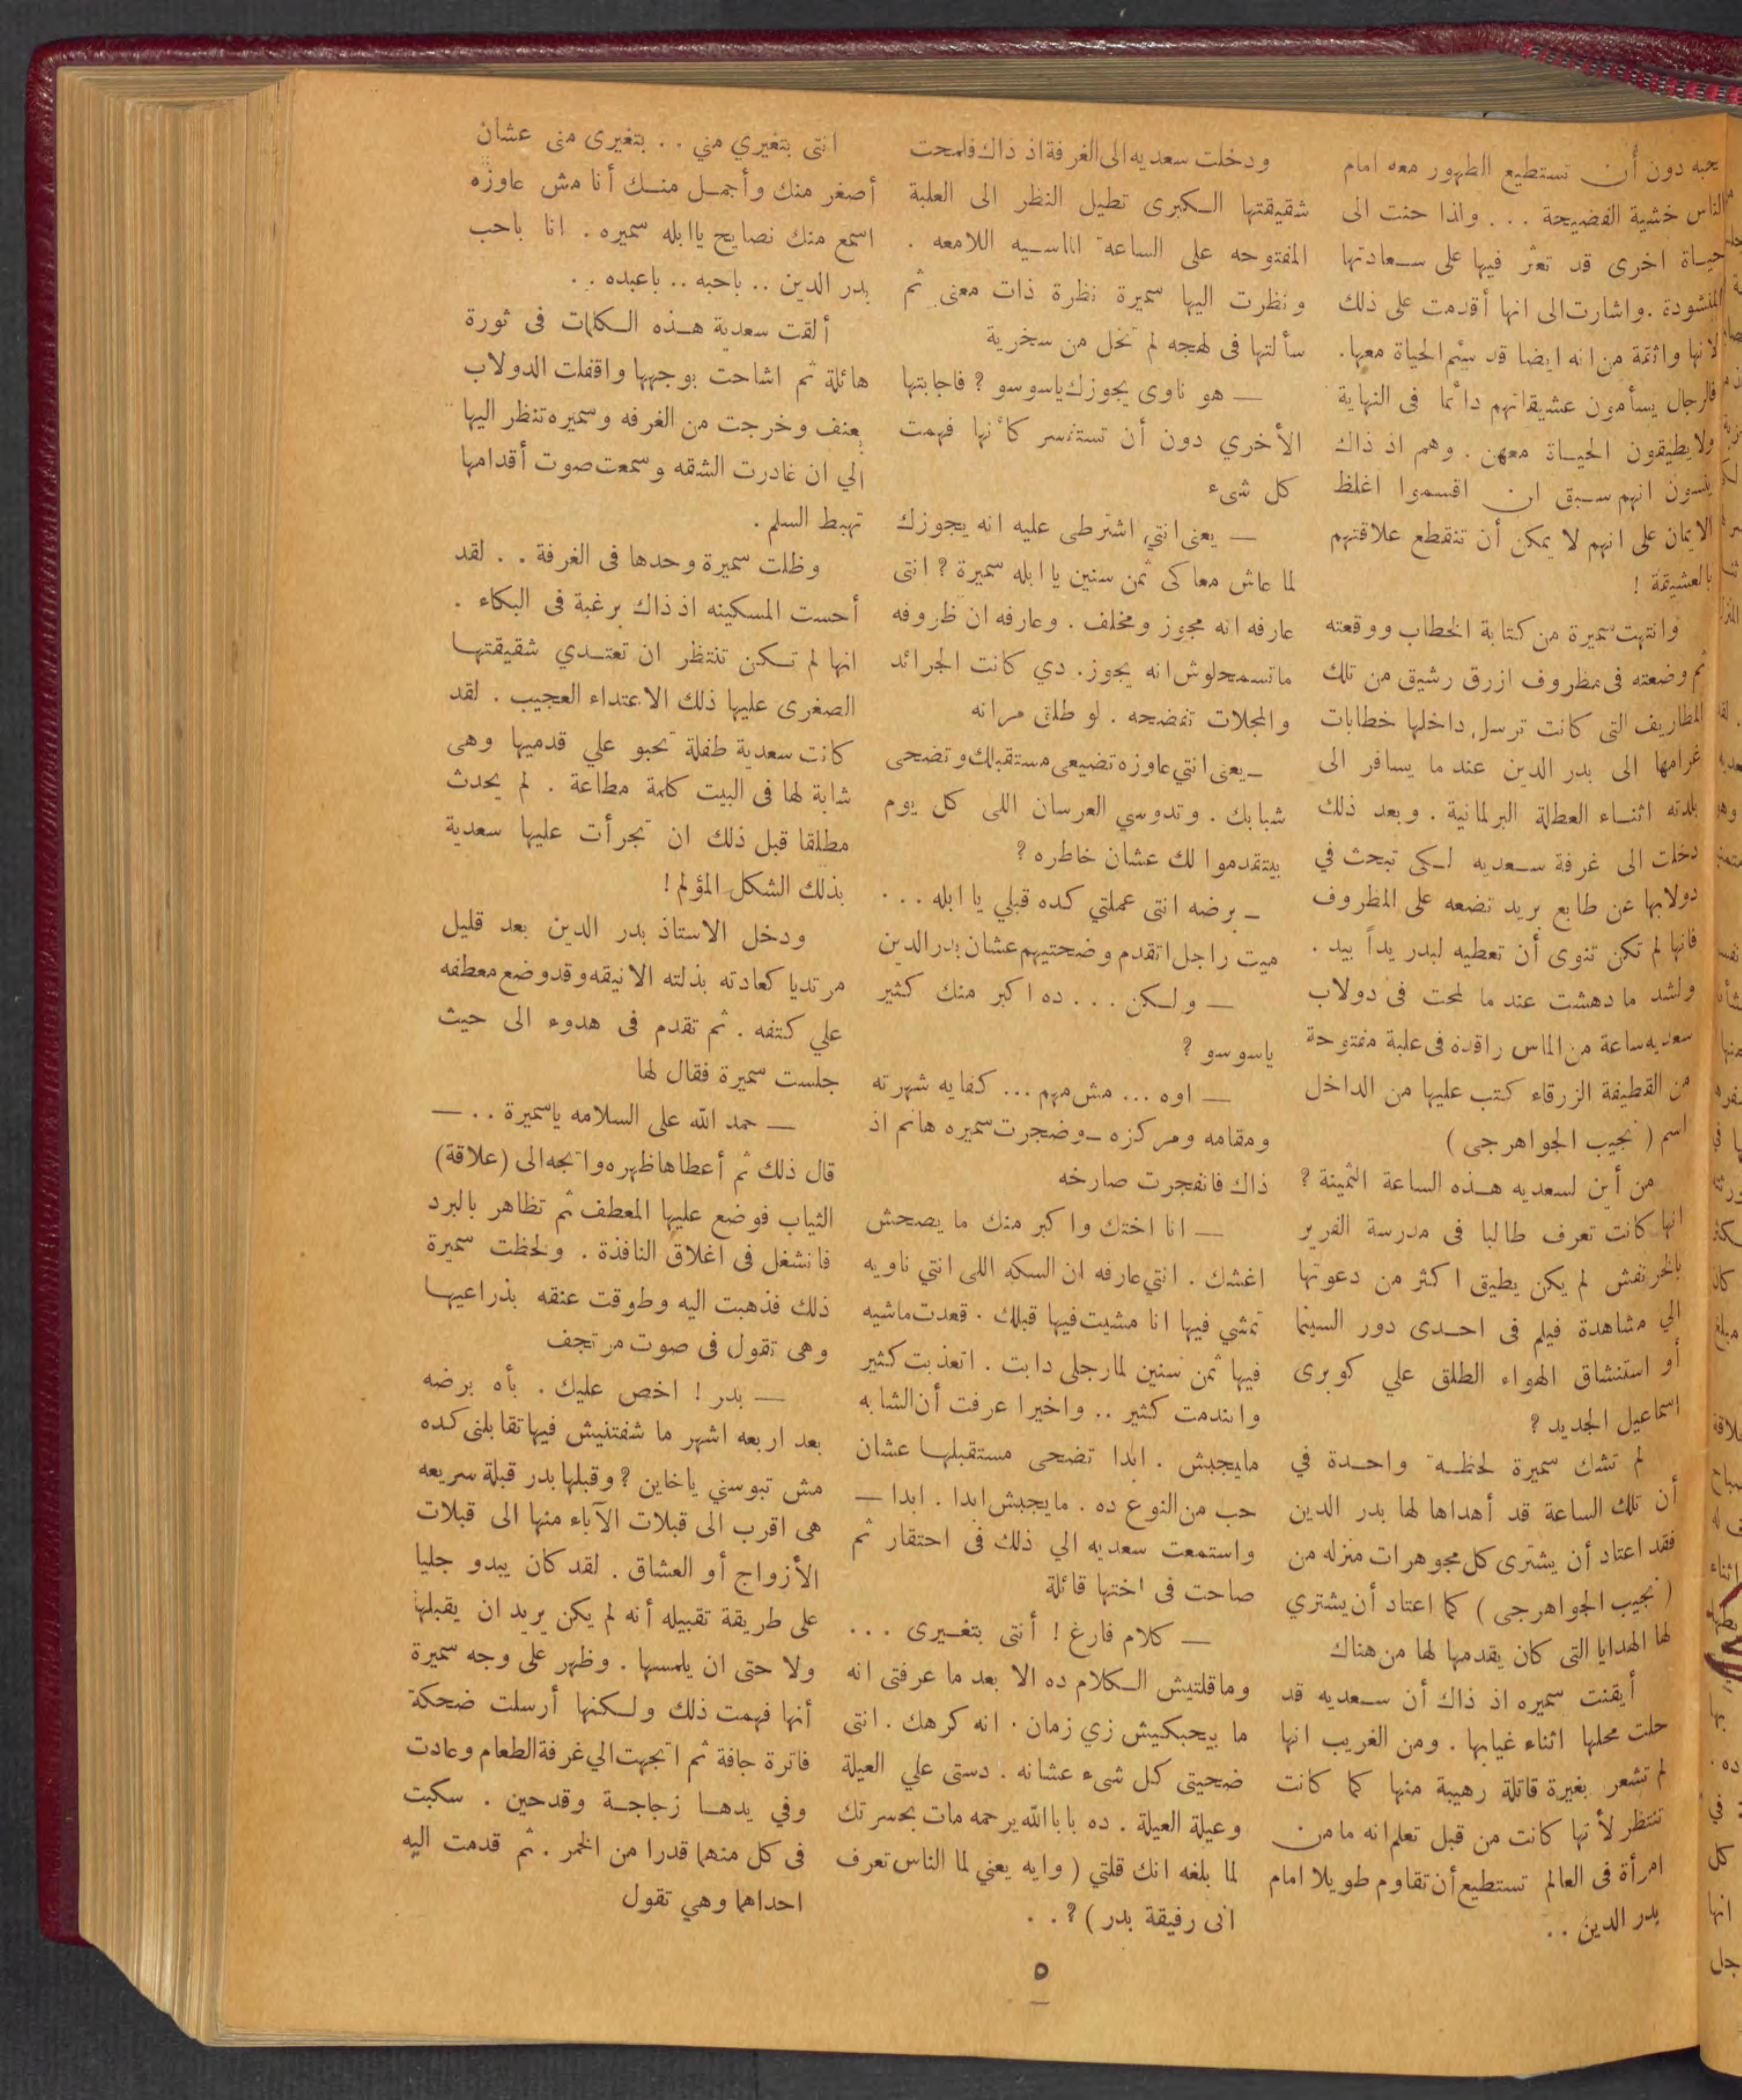 يحبه دون أن تستطيع الظهور معه امام
الناس خشية الفضيحة . . . واذا حنت الى
حياة اخرى قد تعثر فيها على سعادتها
المنشودة . واشارت الى انها أقدمت على ذلك
لانها واثقة من انه ايضا قد سئم الحياة معها.
فالرجال يسأمون عشيقاتهم دائما فى النهاية
ولا يطيقون الحياة معهن . وهم اذ ذاك
ينسون انهم سبق ان اقسموا اغلظ
الايمان على انهم لا يمكن أن تنقطع علاقتهم
بالعشيقة !
وانتهت سميرة من كتابة الخطاب ووقعته
ثم وضعته فى مظروف ازرق رشيق من تلك
المظاريف التى كانت ترسل داخلها خطابات
غرامها الى بدر الدين عند ما يسافر الى
بلدته اثناء العطلة البرلمانية . وبعد ذلك
دخلت الى غرفة سعديه لكى تبحث في
دولابها عن طابع بريد تضعه على المظروف
فانها لم تكن تنوى أن تعطيه لبدر يداً بيد .
ولشد ما دهشت عند ما لمحت فى دولاب
سعديه ساعة من الماس راقدة فى علبة مفتوحة
من القطيفة الزرقاء كتب عليها من الداخل
اسم ( نجيب الجواهرجى )
من أين لسعديه هذه الساعة الثمينة ؟
انها كانت تعرف طالبا فى مدرسة الفرير
بالخرنفش لم يكن يطيق اكثر من دعوتها
الي مشاهدة فيلم فى احدى دور السينما
أو استنشاق الهواء الطلق علي كوبرى
اسماعيل الجديد ؟
لم تشك سميرة لحظة واحدة في
أن تلك الساعة قد أهداها لها بدر الدين
فقد اعتاد أن يشترى كل مجوهرات منزله من
( نجيب الجواهرجى ) كما اعتاد أن يشتري
لها الهدايا التى كان يقدمها لها من هناك
أيقنت سميره اذ ذاك أن سعديه قد
حلت محلها اثناء غيابها . ومن الغريب انها
لم تشعر بغيرة قاتلة رهيبة منها كما كانت
تنتظر لأنها كانت من قبل تعلم انه ما من
امرأة فى العالم تستطيع أن تقاوم طويلا امام
بدر الدين . .
ودخلت سعديه الى الغرفة اذ ذاك فلمحت
شقيقتها الكبرى تطيل النظر الى العلبة
المفتوحه على الساعة الماسيه اللامعه .
ونظرت اليها سميرة نظرة ذات معنى ثم
سألتها فى لهجه لم تخل من سخرية
— هو ناوى يجوزك ياسوسو ؟ فاجابتها
الأخري دون أن تستفسر كأنها فهمت
كل شىء
— يعنى انتي اشترطى عليه انه يجوزك
لما عاش معاكى ثمن سنين يا ابله سميرة ؟ انتى
عارفه انه مجوز ومخلف . وعارفه ان ظروفه
ماتسمحلوش انه يجوز . دي كانت الجرائد
والمجلات تفضحه . لو طلق مراته
— يعنى انتي عاوزه تضيعى مستقبلك وتضحى
شبابك . وتدوسي العرسان اللى كل يوم
بيتقدموا لك عشان خاطره ؟
— برضه انتى عملتي كده قبلي يا ابله . . .
ميت راجل اتقدم وضحتيهم عشان بدر الدين
— ولكن . . . ده اكبر منك كثير
ياسوسو ؟
— اوه ... مش مهم ... كفايه شهرته
ومقامه ومركزه — وضجرت سميره هانم اذ
ذاك فانفجرت صارخه
— انا اختك واكبر منك ما يصحش
اغشك . انتي عارفه ان السكه اللى انتي ناويه
تمشي فيها انا مشيت فيها قبلك . قعدت ماشيه
فيها ثمن سنين لما رجلى دابت . اتعذبت كثير
واتندمت كثير .. واخيرا عرفت أن الشابه
مايجبش . ابدا تضحى مستقبلها عشان
حب من النوع ده . مايجبش ابدا . ابدا —
واستمعت سعديه الي ذلك فى احتقار ثم
صاحت فى اختها قائلة
— كلام فارغ ! أنتى بتغيرى . . .
وماقلتيش الكلام ده الا بعد ما عرفتى انه
ما بيحبكيش زي زمان . انه كرهك . انتى
ضحيتى كل شىء عشانه . دستى علي العيلة
وعيلة العيلة . ده بابا الله يرحمه مات بحسرتك
لما بلغه انك قلتي ( وايه يعني لما الناس تعرف
انى رفيقة بدر ) ؟ . .
انتى بتغيري مني . . بتغيرى منى عشان
أصغر منك وأجمل منك أنا مش عاوزه
اسمع منك نصايح ياابله سميره . انا باحب
بدر الدين .. باحبه .. باعبده . .
ألقت سعدية هذه الكلمات فى ثورة
هائلة ثم اشاحت بوجهها واقفلت الدولاب
بعنف وخرجت من الغرفه وسميره تنظر اليها
الي ان غادرت الشقه وسمعت صوت أقدامها
تهبط السلم .
وظلت سميرة وحدها فى الغرفة . . لقد
أحست المسكينه اذ ذاك برغبة فى البكاء .
انها لم تكن تنتظر ان تعتدي شقيقتها
الصغرى عليها ذلك الاعتداء العجيب . لقد
كانت سعدية طفلة تحبو علي قدميها وهى
شابة لها فى البيت كلمة مطاعة . لم يحدث
مطلقا قبل ذلك ان تجرأت عليها سعدية
بذلك الشكل المؤلم !
ودخل الاستاذ بدر الدين بعد قليل
مرتديا كعادته بذلته الانيقه وقد وضع معطفه
علي كتفه . ثم تقدم فى هدوء الى حيث
جلست سميرة فقال لها
— حمد الله على السلامه ياسميرة . . —
قال ذلك ثم أعطاها ظهره واتجه الى (علاقة)
الثياب فوضع عليها المعطف ثم تظاهر بالبرد
فانشغل فى اغلاق النافذة . ولحظت سميرة
ذلك فذهبت اليه وطوقت عنقه بذراعيها
وهى تقول فى صوت مرتجف
— بدر ! اخص عليك . بأه برضه
بعد اربعه اشهر ما شفتنيش فيها تقابلنى كده
مش تبوسني ياخاين ؟ وقبلها بدر قبلة سريعه
هى اقرب الى قبلات الآباء منها الى قبلات
الأزواج أو العشاق . لقد كان يبدو جليا
على طريقة تقبيله أنه لم يكن يريد ان يقبلها
ولا حتى ان يلمسها . وظهر على وجه سميرة
أنها فهمت ذلك ولكنها أرسلت ضحكة
فاترة جافة ثم اتجهت الي غرفة الطعام وعادت
وفي يدها زجاجة وقدحين . سكبت
فى كل منهما قدرا من الخمر . ثم قدمت اليه
احداهما وهي تقول
٥